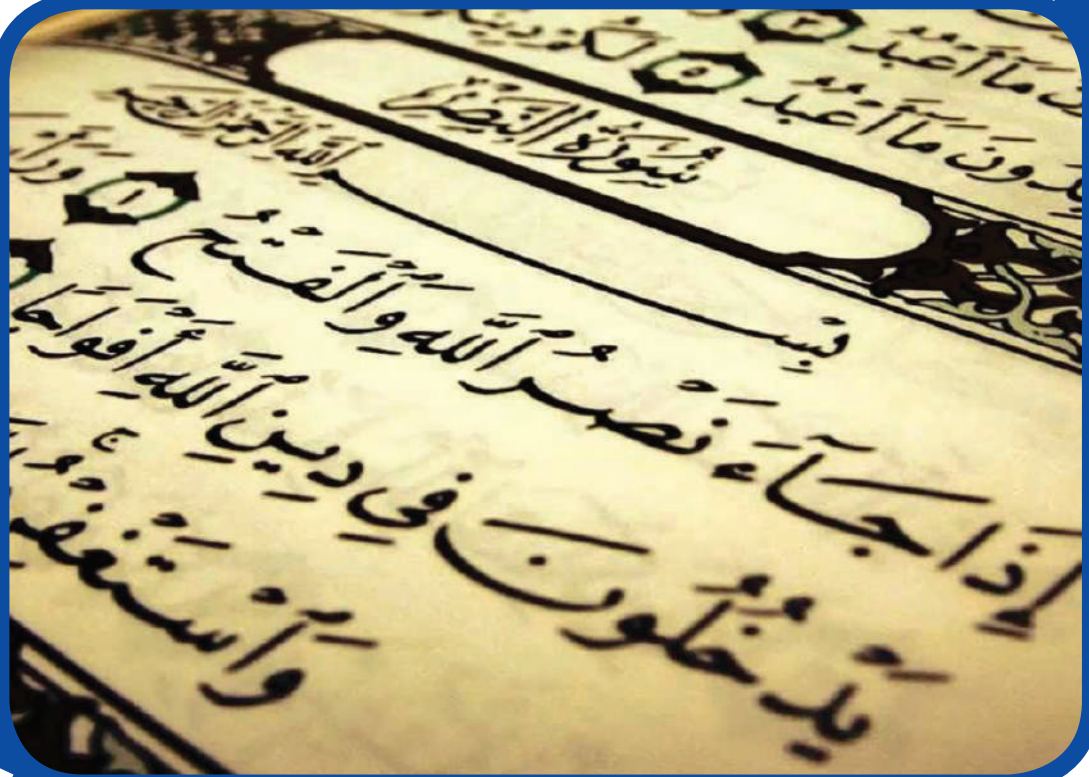 مَآ أَعْبُدُ ٣
ونَ مَآ أَعْبُدُ ٥ لَكُمْ
سُورَةُ النَّصْرِ
بِسْمِ ٱللَّهِ ٱلرَّحْمَٰنِ ٱلرَّحِيمِ
إِذَا جَآءَ نَصْرُ ٱللَّهِ وَٱلْفَتْحُ ١
يَدْخُلُونَ فِي دِينِ ٱللَّهِ أَفْوَاجًا
وَٱسْتَغْفِرْ